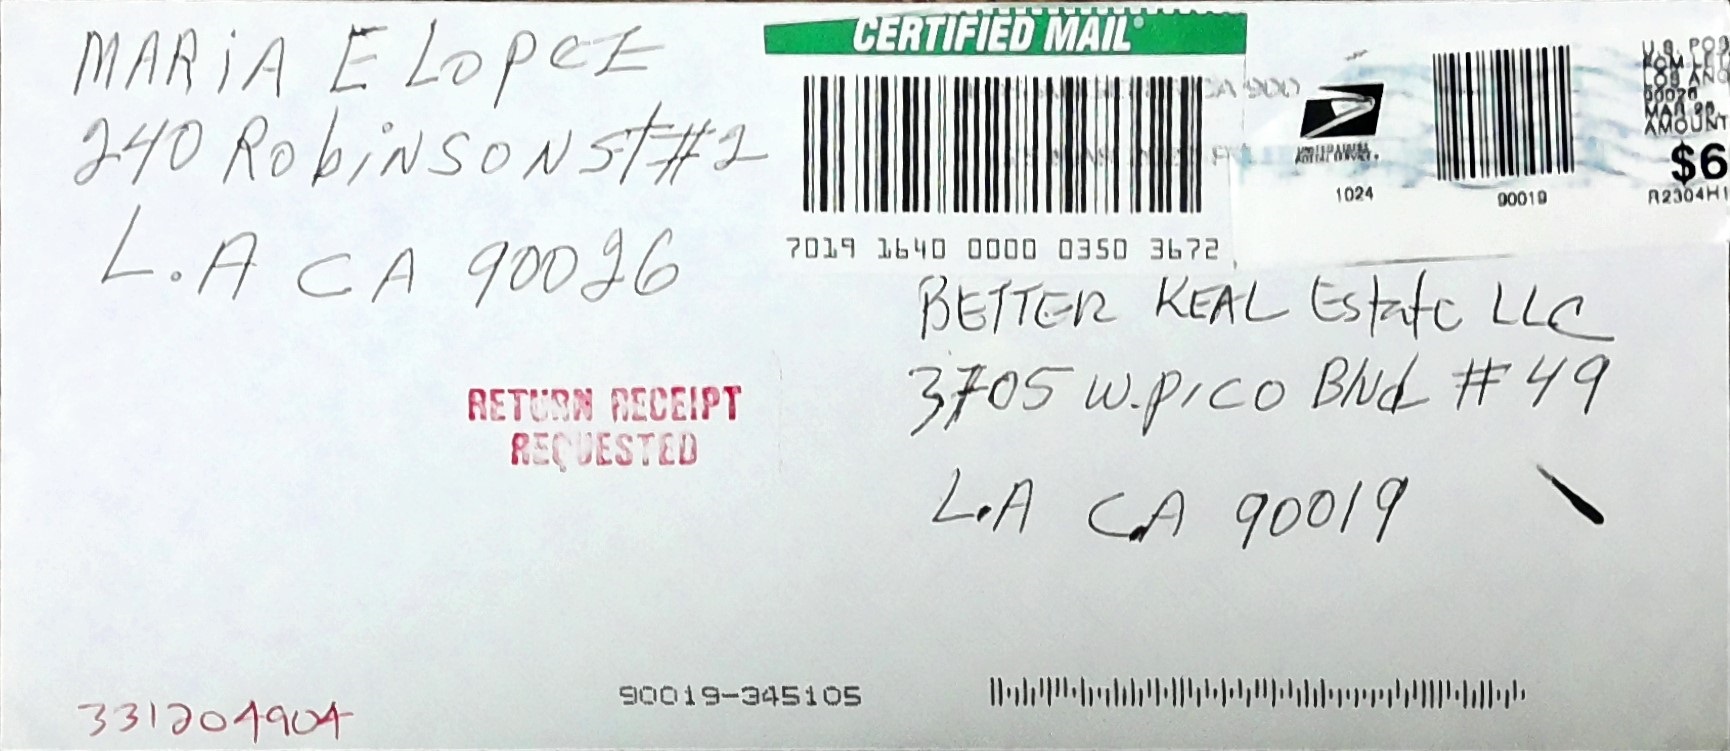 MARiA E LOPEZ
240 RobiNSON St #2
L.A CA 90026
CERTIFIED MAIL®
7019 1640 0000 0350 3672
1024
90019
U.S. POS
LOS ANG
AMOUNT
$6
R2304H1
BETTER REAL Estate LLC
3705 W. Pico Blvd #49
L.A CA 90019
RETURN RECEIPT
REQUESTED
90019-345105
331204904